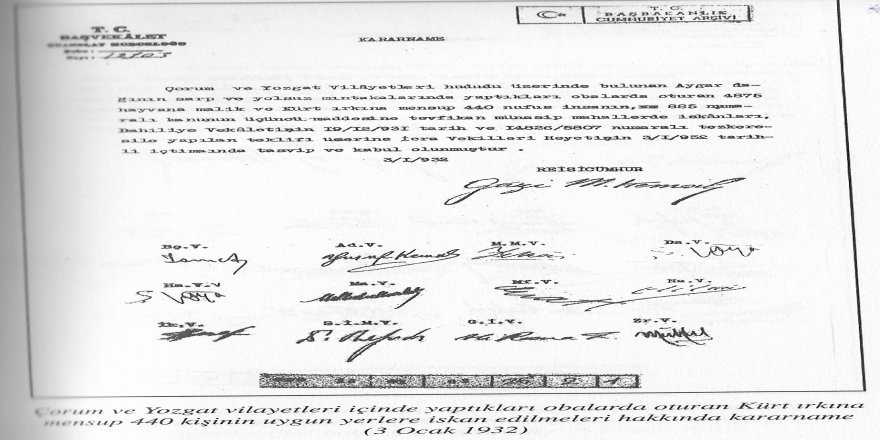 T. C.
BAŞBAKANLIK
CUMHURİYET ARŞİVİ
T. C.
BAŞVEKÂLET
KARARNAME
Çorum ve Yozgat Vilâyetleri hududu üzerinde bulunan Aygar da-
ğının sarp ve yolsuz mıntakalarında yaptıkları obalarda oturan 4875
hayvana malik ve Kürt ırkına mensup 440 nufus insanın, 885 numa-
ralı kanunun üçüncü maddesine tevfikan münasip mahallerde iskânları,
Dahiliye Vekâletinin 19/12/931 tarih ve 14826/5807 numaralı tezkere-
sile yapılan teklifi üzerine İcra Vekilleri Heyetinin 3/1/932 tarih-
li içtimaında tasvip ve kabul olunmuştur .
3/1/932
REİSİCUMHUR
Gazi M. Kemal
Bş.V. Ad.V. M.M.V. Da.V.
Ha.V.V Ma.V. Mf.V. Na.V.
İk.V. S.İ.M.V. G.İ.V. Zr.V.
Çorum ve Yozgat vilayetleri içinde yaptıkları obalarda oturan Kürt ırkına
mensup 440 kişinin uygun yerlere iskan edilmeleri hakkında kararname
(3 Ocak 1932)